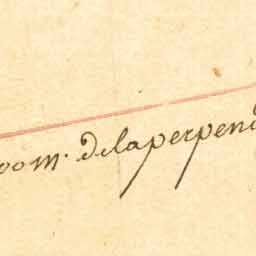 oom. delaperpend